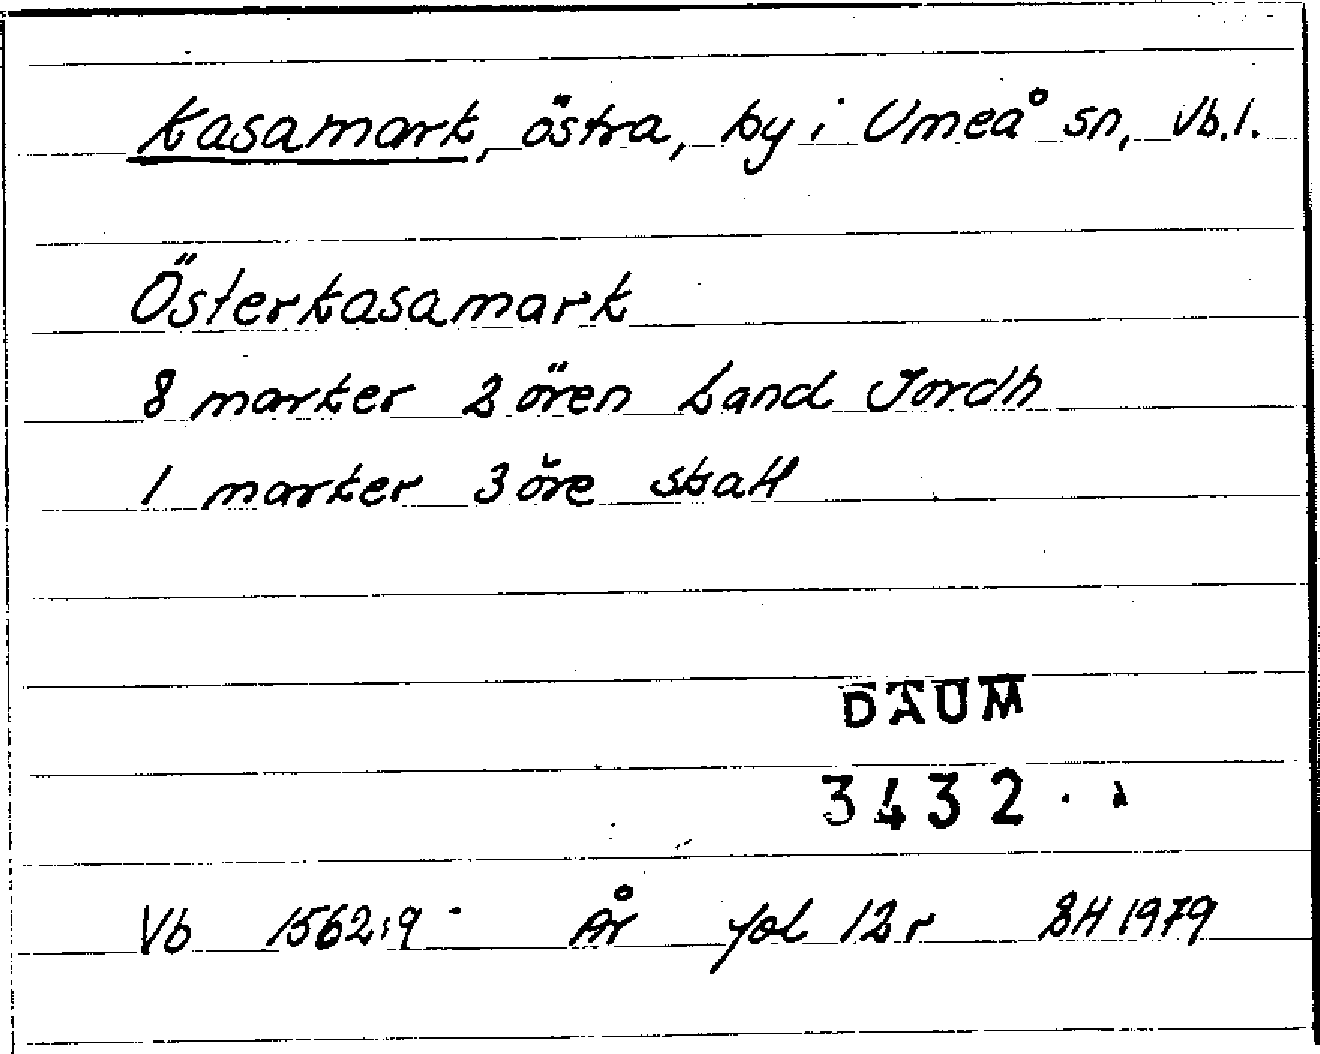 Kasamark, östra, by i Umeå sn, Vb.l.
Österkasamark
8 marker 2 ören Land Jordh
1 marker 3 öre skatt
DAUM
3432
Vb 1562:9 År fol 12r SH 1979